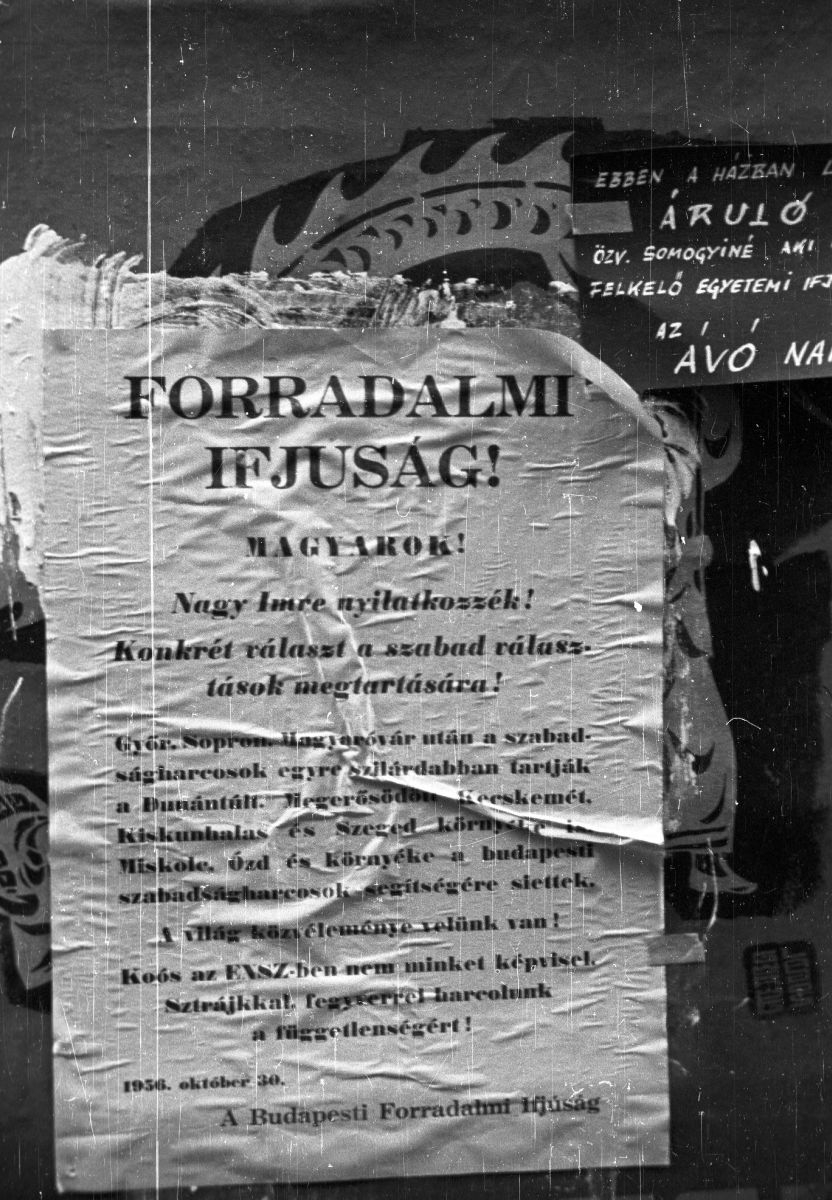 EBBEN A HÁZBAN
ÁRULÓ
ÖZV. SOMOGYINÉ AKI
FELKELŐ EGYETEMI IFJ
AZ
ÁVÓ NAK
FORRADALMI
IFJUSÁG!
MAGYAROK!
Nagy Imre nyilatkozzék!
Konkrét választ a szabad válasz-
tások megtartására!
Győr, Sopron, Magyaróvár után a szabad-
ságharcosok egyre szilárdabban tartják
a Dunántúlt. Megerősödött Kecskemét,
Kiskunhalas és Szeged környéke is.
Miskolc, Ózd és környéke a budapesti
szabadságharcosok segítségére siettek.
A világ közvéleménye velünk van!
Koós az ENSZ-ben nem minket képvisel.
Sztrájkkal, fegyverrel harcolunk
a függetlenségért!
1956. október 30.
A Budapesti Forradalmi Ifjúság